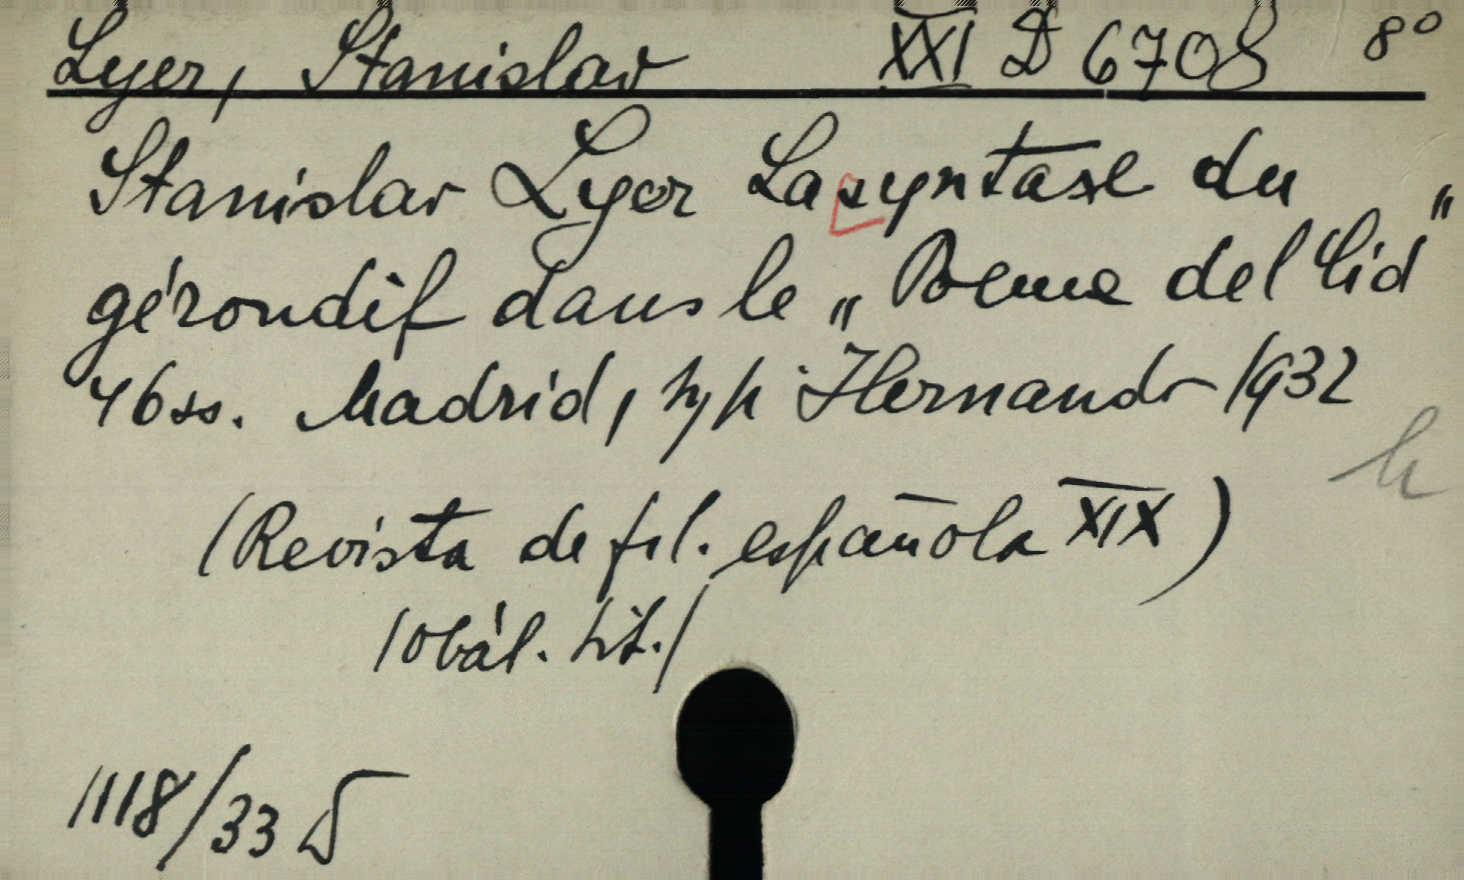 Lyer, Stanislav XXI D 6708 8°
Stanislav Lyer La syntaxe du
gérondif dans le „Poema del Cid"
46 ss. Madrid, typ Hernando 1932
(Revista de fil. española XIX)
/obál. tit./
1118/33